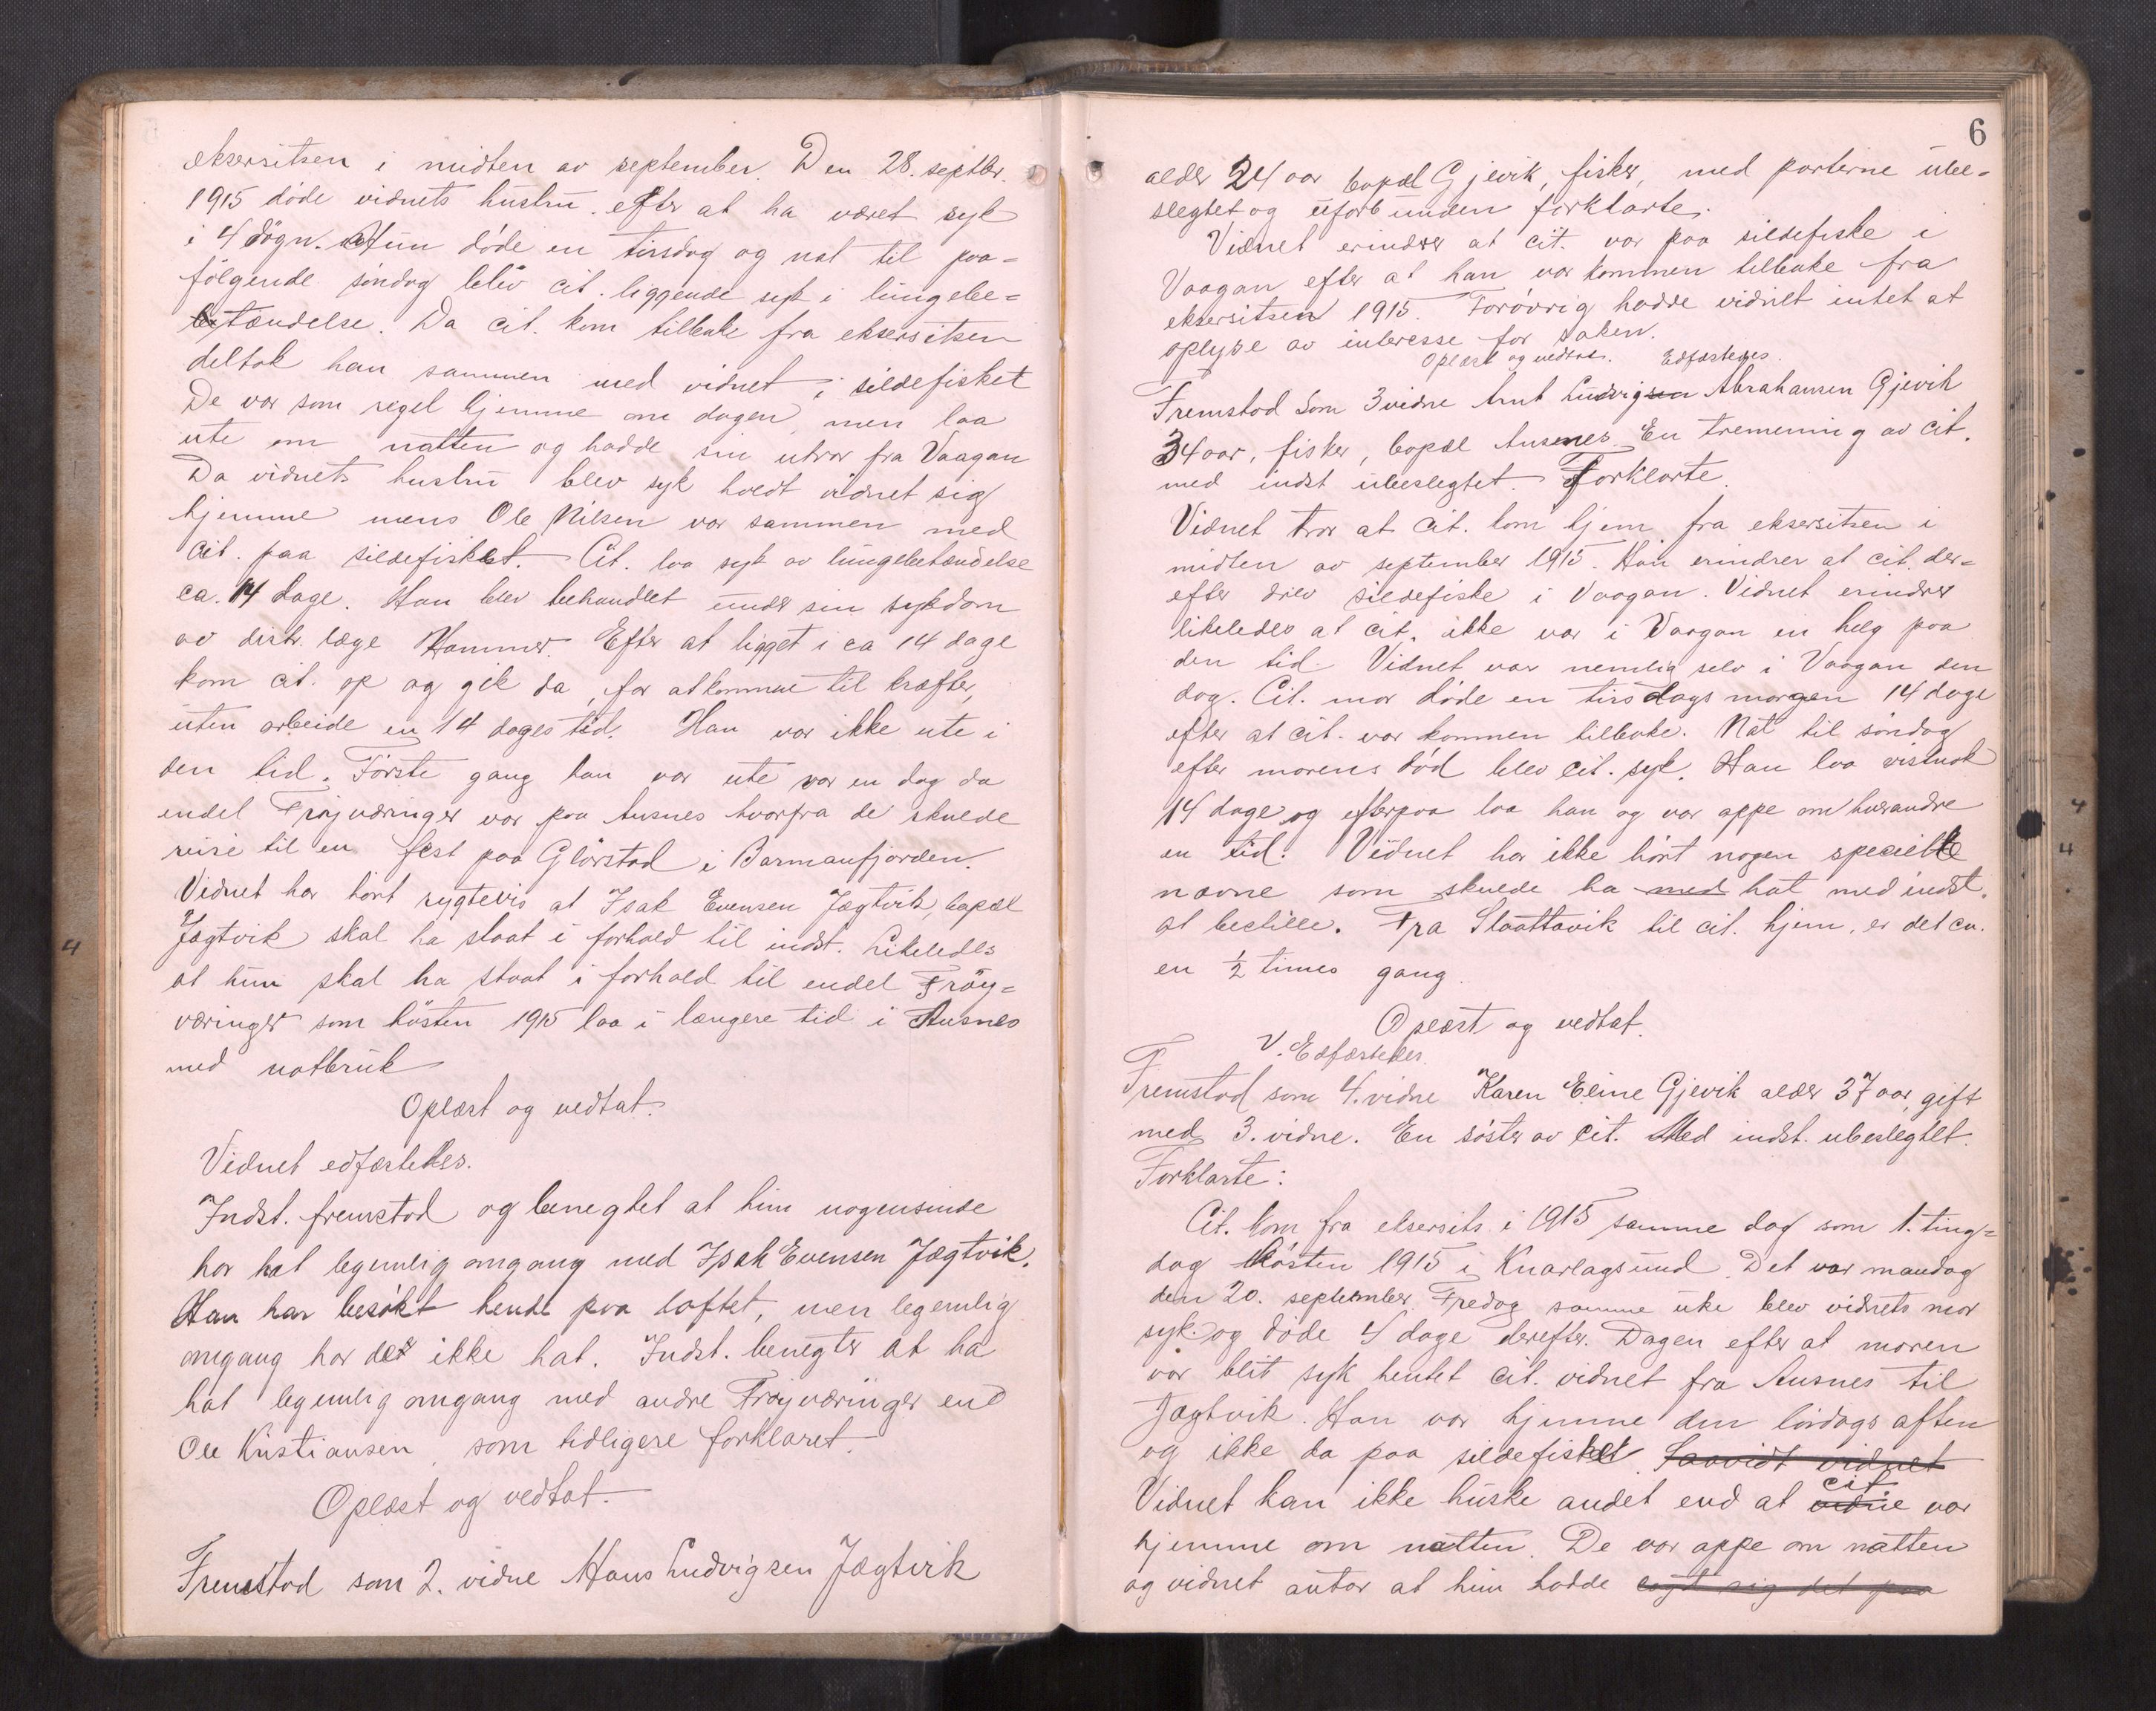 eksersitsen i midten av september. Den 28. septbr.
1915 døde vidnets hustru efter at ha været syk
i 4 døgn. Hun døde en tirsdag og nat til paa-
følgende søndag blev cit. liggende syk i lungebe-
tændelse. Da cit. kom tilbake fra eksersitsen
deltok han sammen med vidnet i sildefisket
De var som regel hjemme om dagen, men laa
ute om natten og hadde sin utror fra Vaagan
Da vidnets hustru blev syk holdt vidnet sig
hjemme mens Ole Nilsen var sammen med
cit. paa sildefisket. Cit. laa syk av lungebetændelse
ca. 14 dage. Han blev behandlet under sin sykdom
av distr. læge Hammer. Efter at ligget i ca 14 dage
kom cit. op og gik da, for at komme til kræfter,
uten arbeide en 14 dages tid. Han var ikke ute i
den tid. Første gang han var ute var en dag da
endel Frøyværinger var paa Ausnes hvorfra de skulde
reise til en fest paa Glørstad i Barmanfjorden.
Vidnet har hørt rygtevis at Isak Evensen Jægtvik, bopæl
Jægtvik skal ha staat i forhold til indst. Likeledes
at hun skal ha staat i forhold til endel Frøy-
væringer som høsten 1915 laa i længere tid i Ausnes
med notbruk
Oplæst og vedtat.
Vidnet edfæstedes.
Indst. fremstod og benegtet at hun nogensinde
har hat legemlig omgang med Isak Evensen Jægtvik.
Han har besøkt hende paa loftet, men legemlig
omgang har det ikke hat. Indst. benegter at ha
hat legemlig omgang med andre Frøyværinger end
Ole Kristiansen, som tidligere forklaret.
Oplæst og vedtat.
Fremstod som 2. vidne Hans Ludvigsen Jægtvik
6
alder 24 aar bopæl Gjevik, fisker, med parterne ube-
slegtet og uforbunden forklarte:
Vidnet erindrer at cit. var paa sildefiske i
Vaagan efter at han var kommen tilbake fra
eksersitsen 1915. Forøvrig hadde vidnet intet at
oplyse av interesse for saken.
Oplæst og vedtat. Edfæstedes.
Fremstod som 3 vidne Arnt Ludvigsen Abrahamsen Gjevik
34 aar, fisker, bopæl Ausnes. En tremenning av cit.
med indst ubeslegtet. Forklarte.
Vidnet tror at cit. kom hjem fra eksersitsen i
midten av september 1915. Han erindrer at cit. der-
efter drev sildefiske i Vaagan. Vidnet erindrer
likeledes at cit. ikke var i Vaagan en helg paa
den tid. Vidnet var nemlig selv i Vaagan den
dag. Cit. mor døde en tirsdags morgen 14 dage
efter at cit. var kommen tilbake. Nat til søndag
efter morens død blev cit. syk. Han laa visnok
14 dage og efterpaa laa han og var oppe om hverandre
en tid. Vidnet har ikke hørt nogen specielle
navne som skulde ha med hat med indst.
at bestille. Fra Slaattavik til cit. hjem, er det ca.
en ½ times gang
Oplæst og vedtat.
V. Edfæstedes.
Fremstod som 4. vidne Karen Eline Gjevik alder 37 aar, gift
med 3. vidne. En søster av cit. Med indst. ubeslegtet.
Forklarte:
Cit. kom fra eksersits i 1915 samme dag som 1. ting-
dag høsten 1915 i Knarlagsund. Det var mandag
den 20. september. Fredag samme uke blev vidnets mor
syk og døde 4 dage derefter. Dagen efter at moren
var blit syk hentet cit. vidnet fra Ausnes til
Jægtvik. Han var hjemme den lørdags aften
og ikke da paa sildefisket. Saavidt vidnet
cit
Vidnet kan ikke huske andet end at vidne var
hjemme om natten. De var oppe om natten
og vidnet antar at hun hadde lagt sig det paa